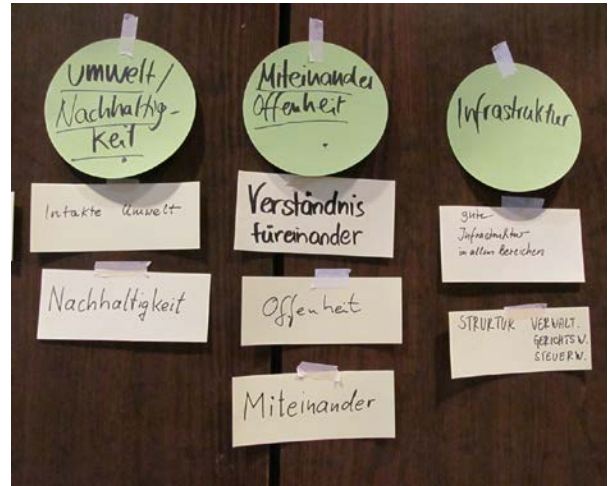 Umwelt/
Nachhaltig-
keit
Intakte Umwelt
Nachhaltigkeit
Miteinander
Offenheit
Verständnis
füreinander
Offenheit
Miteinander
Infrastruktur
gute
Infrastruktur
in allen Bereichen
STRUKTUR VERWALT.
GERICHTSW.
STEUERW.